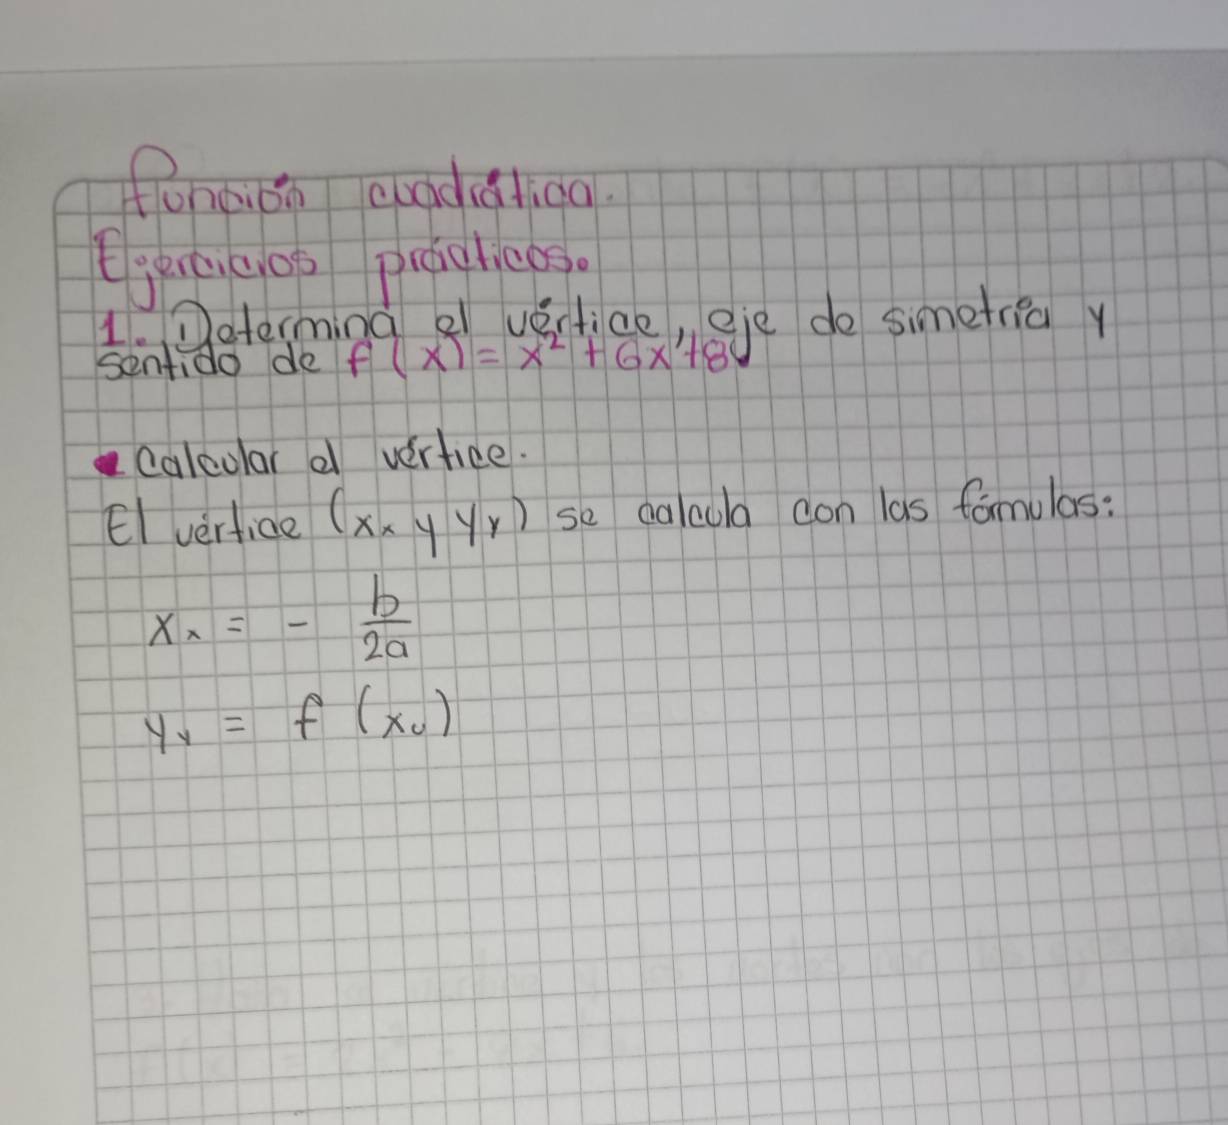 Función cuadrática.
Ejercicios prácticos.
1. Determina el vértice, eje de simetría y
sentido de f(x) = x² + 6x + 8
• Calcular el vértice.
El vértice (xₓ y yᵧ) se calcula con las fórmulas:
xₓ = - b/2a
yᵧ = f (xᵥ)